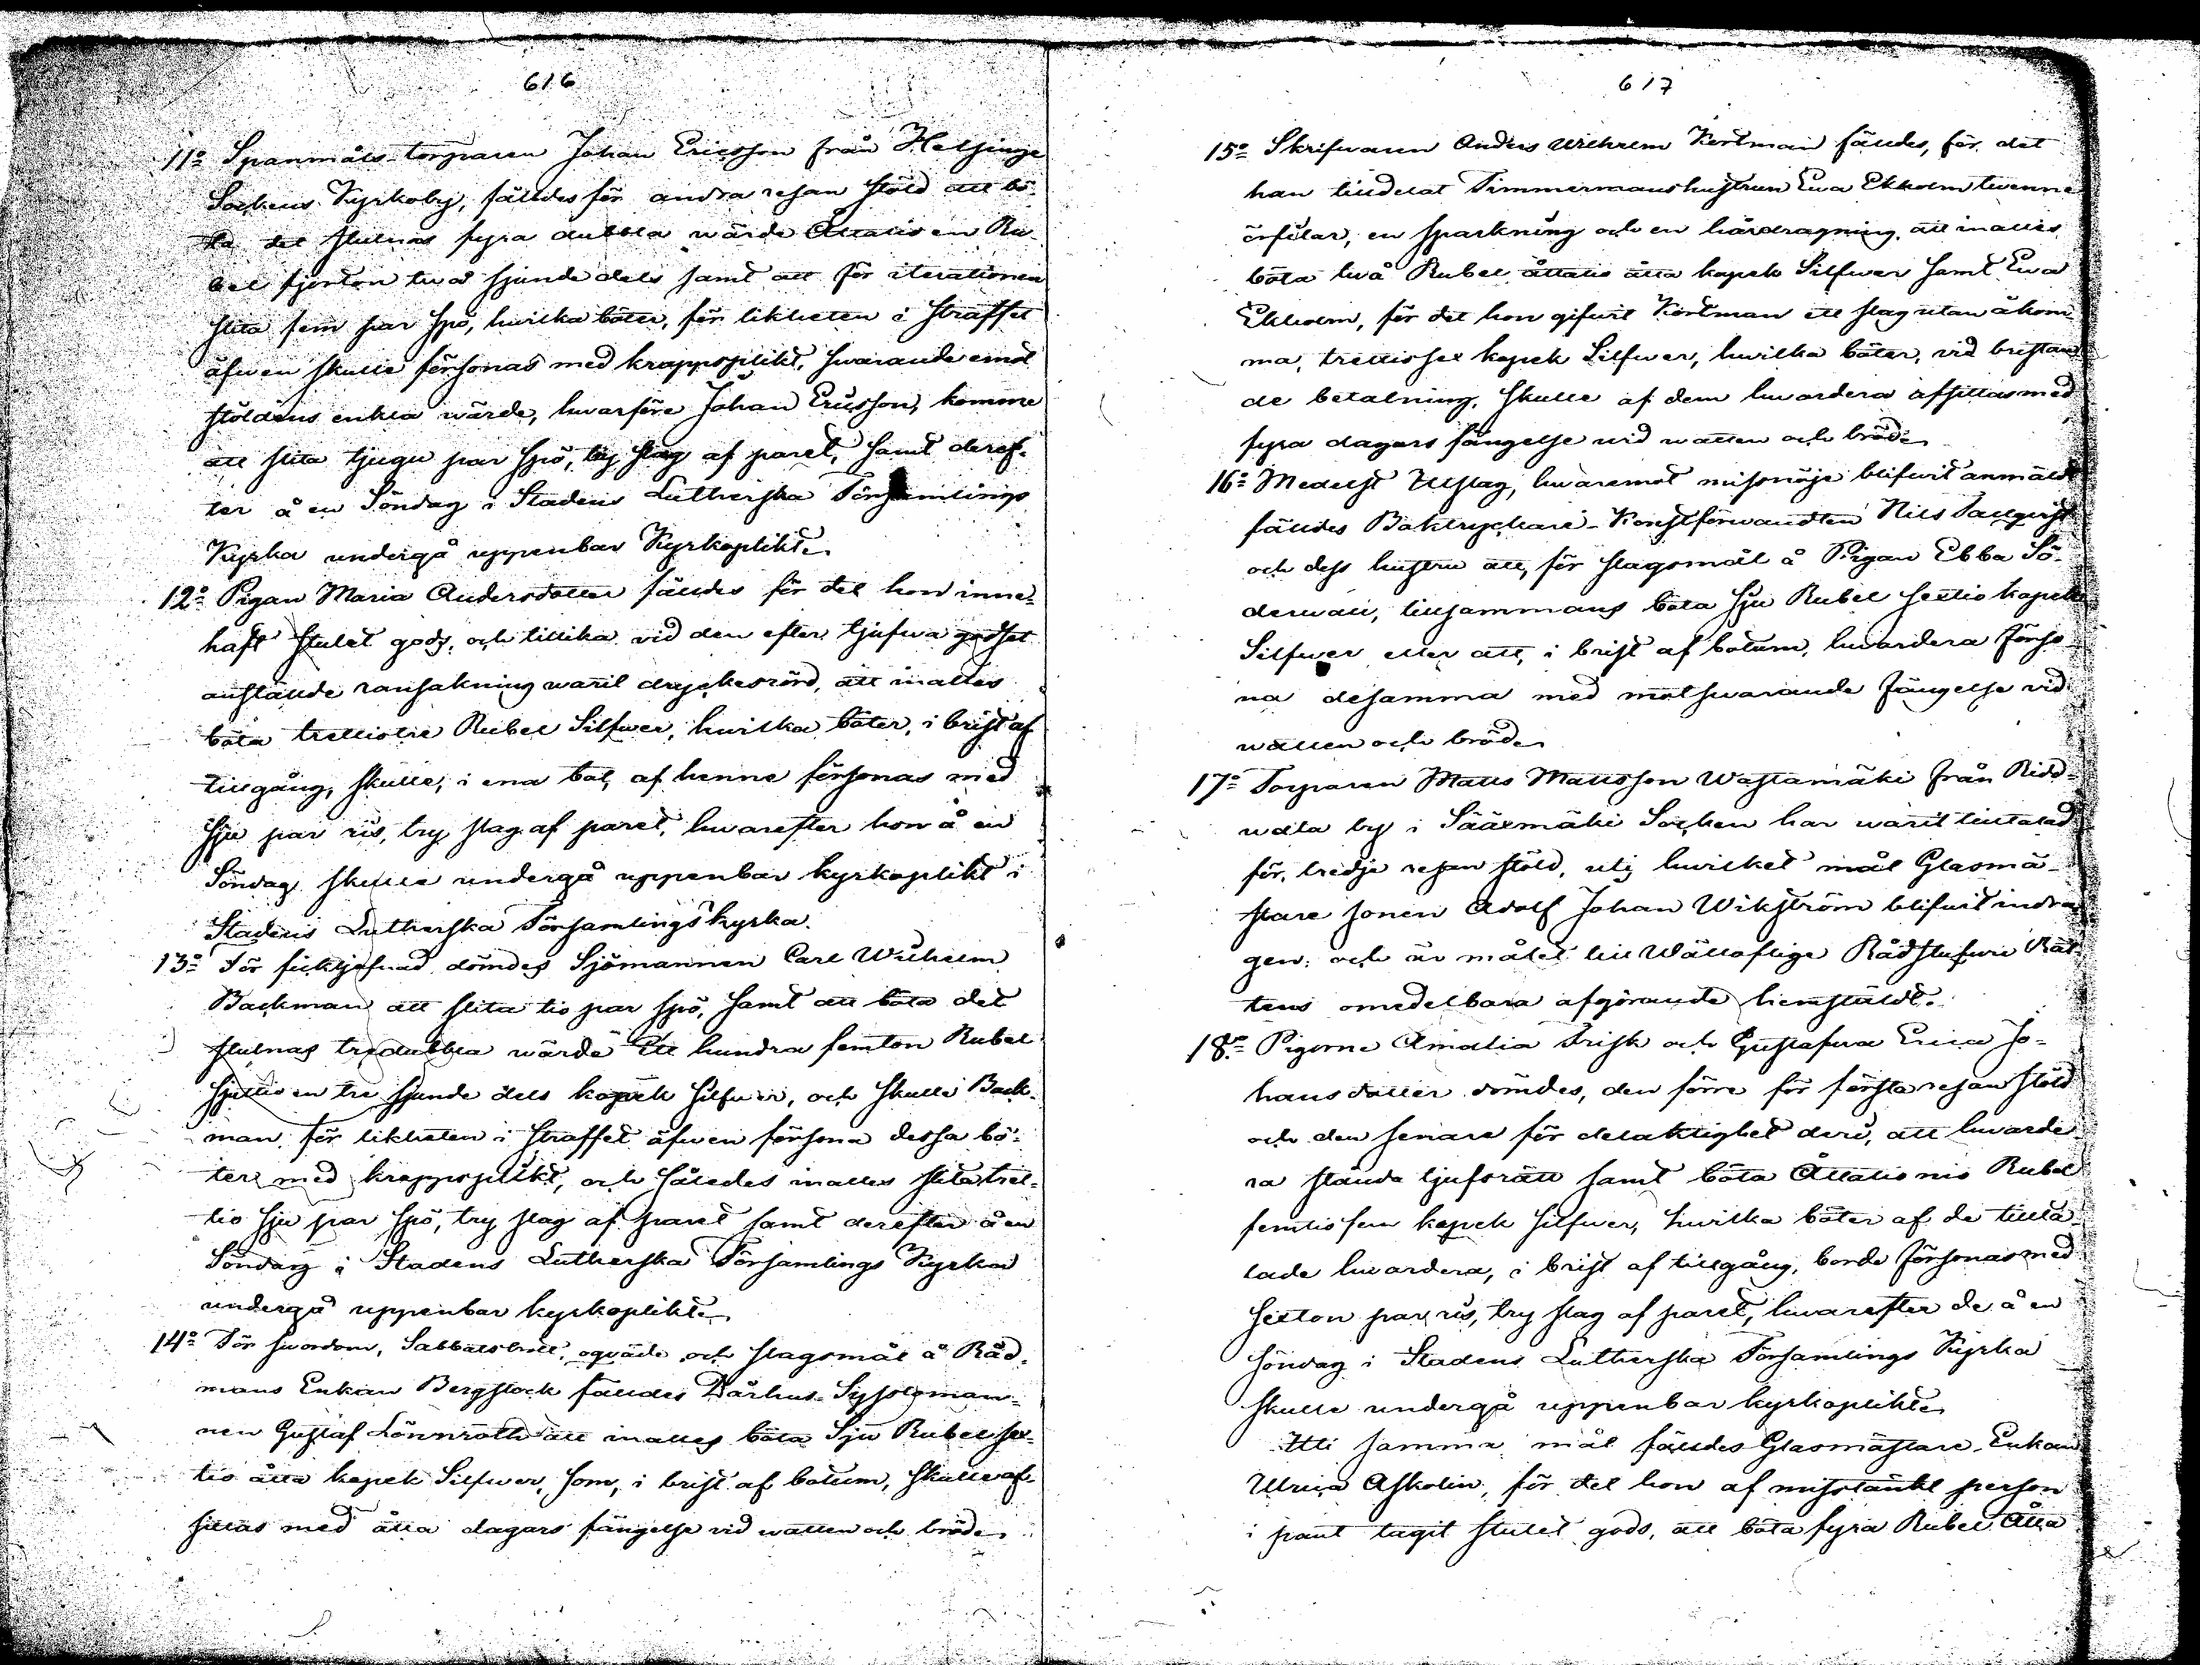 616
11o Spanmåls torparen Johan Ericsson från Helsinge
Sockens Kyrkoby, fälldes för andra resan stöld att bö-
ta det stulnas fyra dubbla wärde Åttatio en Ru-
bel fjorton två sjunde dels samt att för iterationen
slita fem par spö, hwilka böter, för likheten i straffet
äfwen skulle försonas med kroppsplikt, swarande emot
stöldens enkla wärde, hwarföre Johan Ericsson, komme
att slita tjugu par spö, try slag af paret, samt deref-
ter å en Söndag i Stadens Lutherska Församlings
Kyrka undergå uppenbar Kyrkoplikt.
12o Pigan Maria Andersdotter fälldes för det hon inne-
haft stulet gods, och tillika vid den efter tjufwa godset
anställde ransakning warit dryckesrörd, att inalles
böta trettiotre Rubel Silfwer, hwilka böter, i brist af
tillgång, skulle, i ena bot, af henne försonas med
sju par ris, try slag af paret, hwarefter hon å en
Söndag skulle undergå uppenbar kyrkoplikt i
Stadens Lutherska Församlings kyrka.
13o För ficktjufnad dömdes Sjömannen Carl Wilhelm
Backman att slita tio par spö, samt att böta det
stulnas tredubbla wärde Ett hundra femton Rubel
sjuttio en tre sjunde dels kopek silfwer, och skulle Back-
man för likheten i straffet äfwen försona dessa bö-
ter med kroppsplikt, och således inalles slita tret-
tio sju par spö, try slag af paret samt derefter å en
Söndag i Stadens Lutherska Församlings Kyrka
undergå uppenbar kyrkoplikt.
14o För swordom, Sabbatsbrott, oqväde och slagsmål å Råd-
mans Enkan Bergstock fälldes Dårhus-Syssloman-
nen Gustaf Lönnroth att inalles böta Sju Rubel sex-
tio åtta kopek Silfwer, som, i brist af botum, skulle af-
sittas med åtta dagars fängelse vid watten och bröd.
617
15o Skrifwaren Anders Wilhelm Kortman fälldes, för det
han tilldelat Timmermanshustrun Ewa Ekholm twenne
örfilar, en sparkning och en hårdragning, att inalles
böta twå Rubel åttatio åtta kopek Silfwer samt Ewa
Ekholm, för det hon gifwit Kortman ett slag utan åkom-
ma, trettiosex kopek Silfwer, hwilka böter, vid bristan-
de betalning, skulle af dem hwardera afsittas med
fyra dagars fängelse vid watten och bröd.
16o Medelst Utslag, hwaremot missnöje blifwit anmäldt
fälldes Boktryckare-Konstförwandten Nils Tallqvist
och dess hustru att, för slagsmål å Pigan Ebba Sö-
derwall, tillsammans böta sju Rubel sextio kopek
Silfwer eller att, i brist af botum, hwardera förso-
na desamma med motswarande fängelse vid
watten och bröd.
17o Torparen Matts Mattsson Wastamäki från Ridd-
wala by i Sääxmäki Socken har warit tilltalad
för tredje resan stöld, uti hwilket mål Glasmä-
stare sonen Adolf Johan Wikström blifwit indra-
gen; och är målet till Wällofliga Rådstufwu Rät-
tens omedelbara afgörande hemstäldt.
18o Pigorne Amalia Frisk och Gustafwa Erica Jo-
hansdotter dömdes, den förre för första resan stöld
och den senare för delaktighet deri, att hwarde-
ra stånda tjufsrätt samt böta Åttatio nio Rubel
femtio fem kopek silfwer, hwilka böter af de tillta-
lade hwardera, i brist af tillgång, borde försonas med
sexton par ris, try slag af paret, hwarefter de å en
söndag i Stadens Lutherska Församlings Kyrka
skulle undergå uppenbar kyrkoplikt.
Uti samma mål fälldes Glasmästare-Enkan
Ulrica Askolin, för det hon af misstänkt person
i pant tagit stulet gods, att böta fyra Rubel Åtta